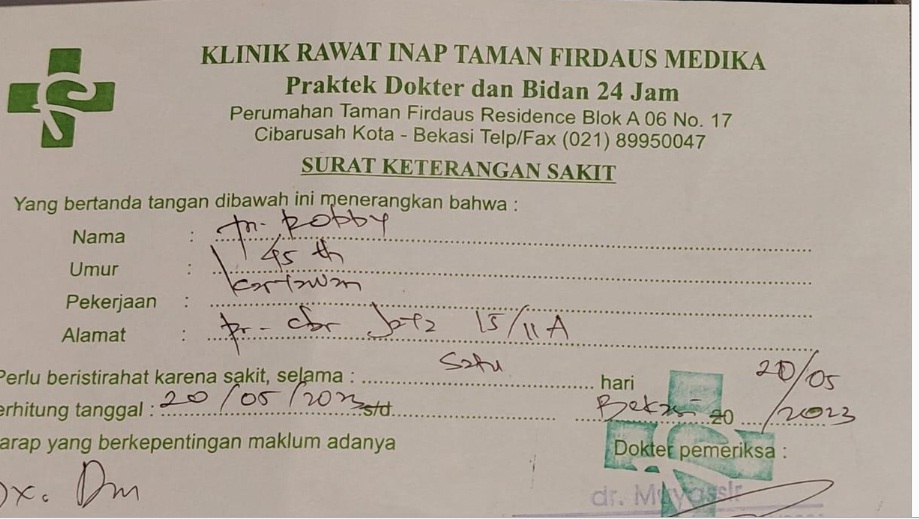 KLINIK RAWAT INAP TAMAN FIRDAUS MEDIKA
Praktek Dokter dan Bidan 24 Jam
Perumahan Taman Firdaus Residence Blok A 06 No. 17
Cibarusah Kota - Bekasi Telp/Fax (021) 89950047
SURAT KETERANGAN SAKIT
Yang bertanda tangan dibawah ini menerangkan bahwa :
Nama : Tn. Robby
Umur : 45 th
Pekerjaan : karyawan
Alamat : 15/11A
Perlu beristirahat karena sakit, selama : satu hari
erhitung tanggal : 20/05/2023 s/d
Bekasi 20/05/2023
arap yang berkepentingan maklum adanya
Dokter pemeriksa :
Dx. Dm
dr. Muyassir